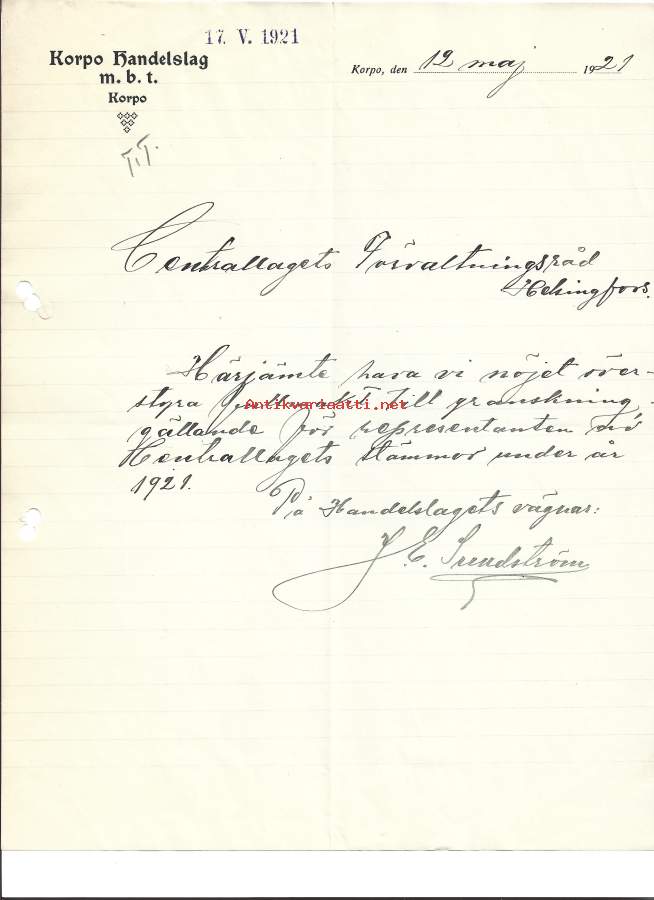 17. V. 1921
Korpo Handelslag
m. b. t.
Korpo
Korpo, den 12 maj 1921
T.T.
Centrallagets Förvaltningsråd
Helsingfors.
Härjämte hava vi nöjet över-
styra till granskning
Antikvariaatti.net
gällande för representanten vid
Centrallagets stämmor under år
1921.
På Handelslagets vägnar:
J. E. Sundström